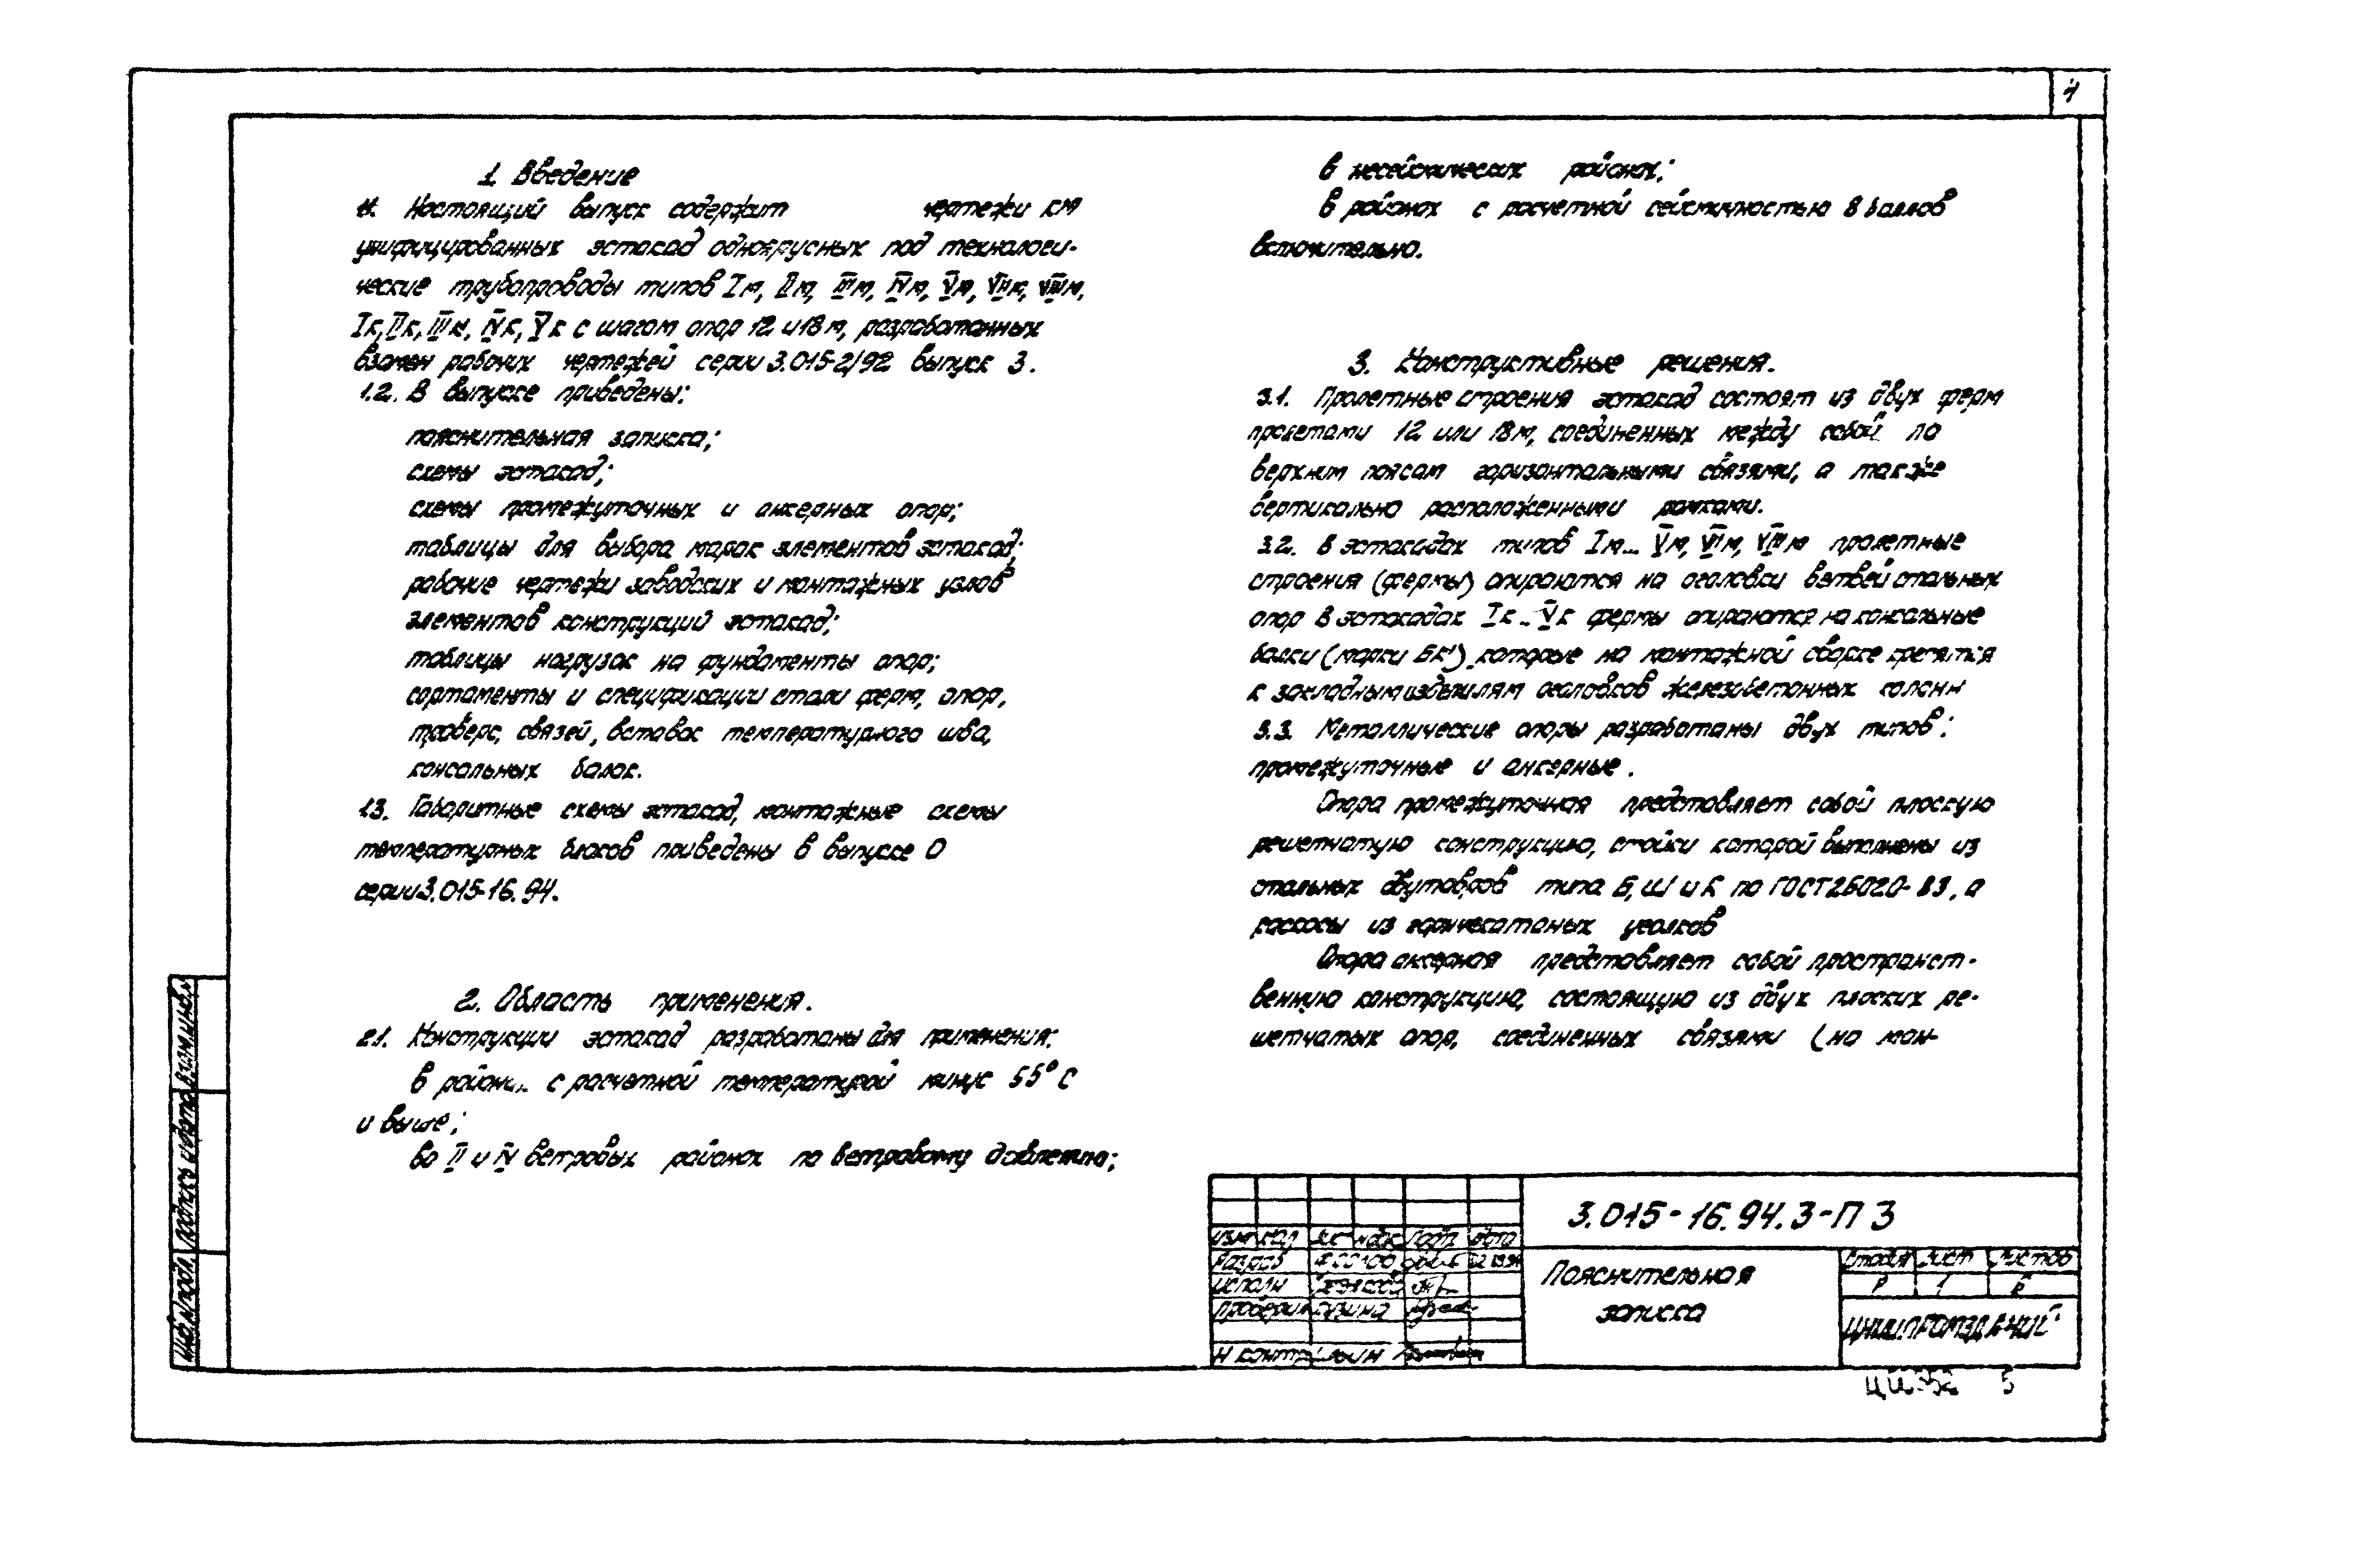 4
1. Введение
1.1. Настоящий выпуск содержит чертежи КМ
унифицированных эстакад одноярусных под технологи-
ческие трубопроводы типов Iм, IIм, IIIм, IVм, Vм, VIIм, VIIIм,
Iк, IIк, IIIк, IVк, Vк с шагом опор 12 и 18 м, разработанных
взамен рабочих чертежей серии 3.015-2/92 выпуск 3.
1.2. В выпуске приведены:
пояснительная записка;
схемы эстакад;
схемы промежуточных и анкерных опор;
таблицы для выбора марок элементов эстакад;
рабочие чертежи заводских и монтажных узлов
элементов конструкций эстакад;
таблицы нагрузок на фундаменты опор;
сортаменты и спецификации стали ферм, опор,
траверс, связей, вставок температурного шва,
консольных балок.
1.3. Габаритные схемы эстакад, монтажные схемы
температурных блоков приведены в выпуске 0
серии 3.015-16.94.
2. Область применения.
2.1. Конструкции эстакад разработаны для применения:
в районах с расчетной температурой минус 55° С
и выше;
во II и IV ветровых районах по ветровому давлению;
в несейсмических районах;
в районах с расчетной сейсмичностью 8 баллов
включительно.
3. Конструктивные решения.
3.1. Пролетные строения эстакад состоят из двух ферм
пролетами 12 или 18 м, соединенных между собой по
верхним поясам горизонтальными связями, а также
вертикально расположенными рамками.
3.2. В эстакадах типов Iм... Vм, VIм, VIIIм пролетные
строения (фермы) опираются на оголовки ветвей стальных
опор В эстакадах Iк...Vк фермы опираются на консольные
балки (марки БК1), которые на монтажной сварке крепятся
к закладным изделиям оголовков железобетонных колонн
3.3. Металлические опоры разработаны двух типов:
промежуточные и анкерные.
Опора промежуточная представляет собой плоскую
решетчатую конструкцию, стойки которой выполнены из
стальных двутавров типа Б, Ш и К по ГОСТ 26020-83, а
раскосы из горячекатаных уголков
Опора анкерная представляет собой пространст-
венную конструкцию, состоящую из двух плоских ре-
шетчатых опор, соединенных связями (на мон-
3.015-16.94.3-ПЗ
Изм Кол Лис Nдок Подп Дата
Разраб
Исполн
Проверил
Н контр
Пояснительная
записка
Стадия Лист Листов
Р 1
ЦНИИПРОМЗДАНИЙ
Инв.N подл. Подпись и дата Взам.инв.N
5